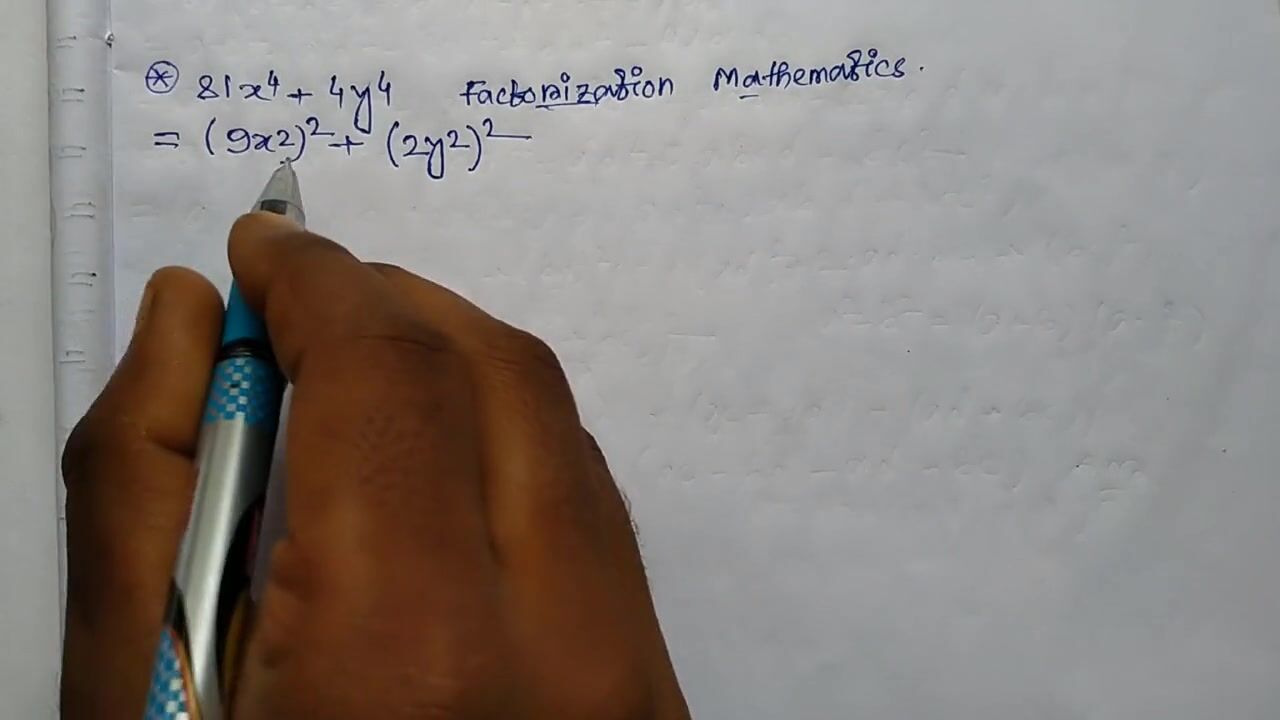 ⊛ 81x⁴ + 4y⁴ Factorization Mathematics.
= (9x2)² + (2y2)²